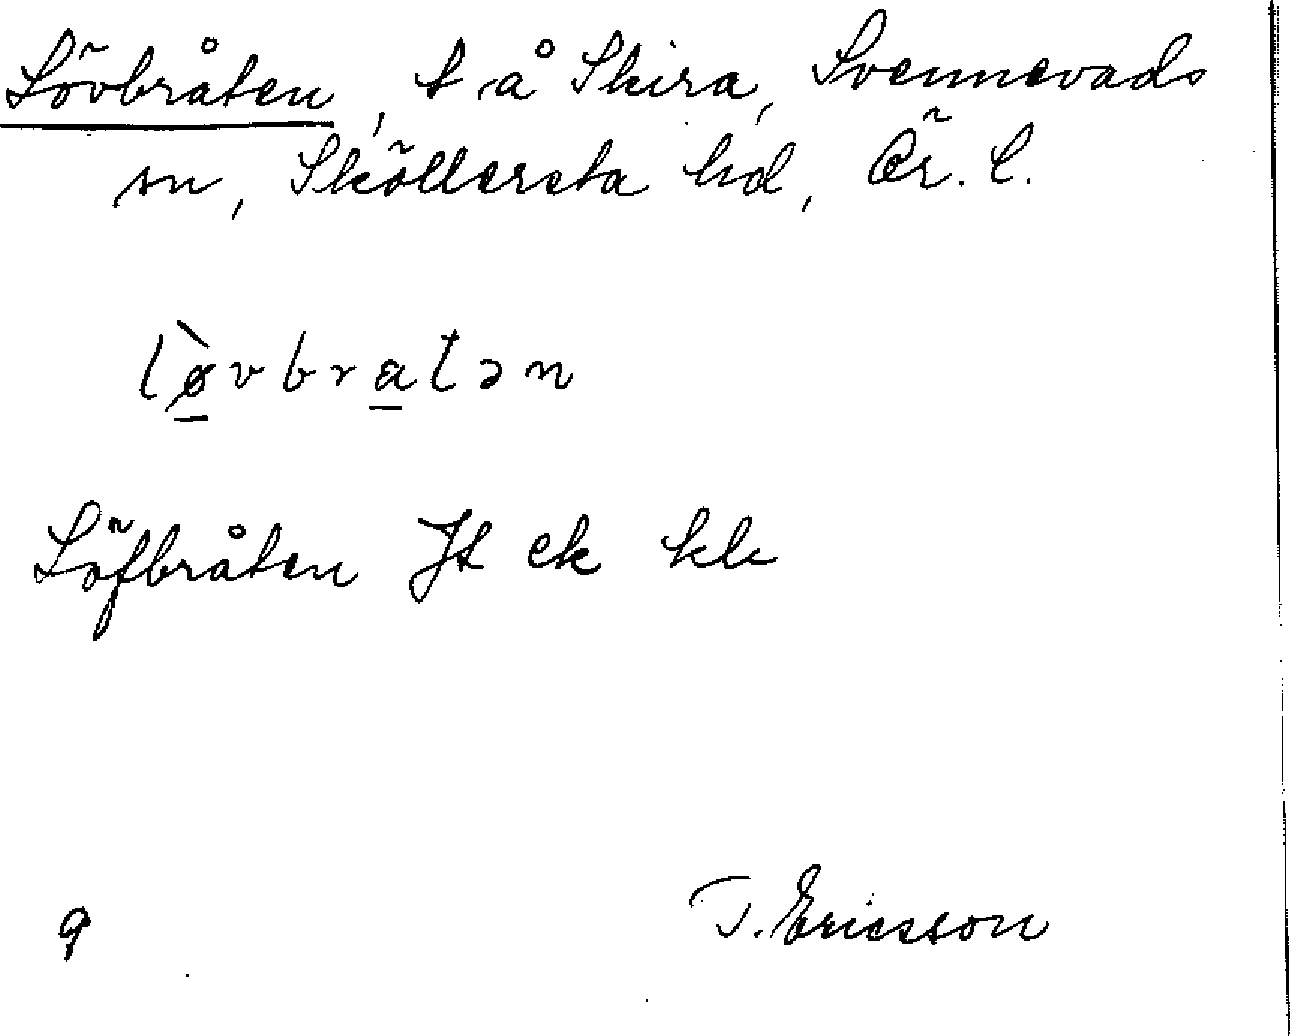 Lövbråten, t å Skira, Svennevads
sn, Sköllersta hd, Ör. l.
lø̱̀vbra̱tən
Löfbråten Jt ek kk
9
T. Ericsson